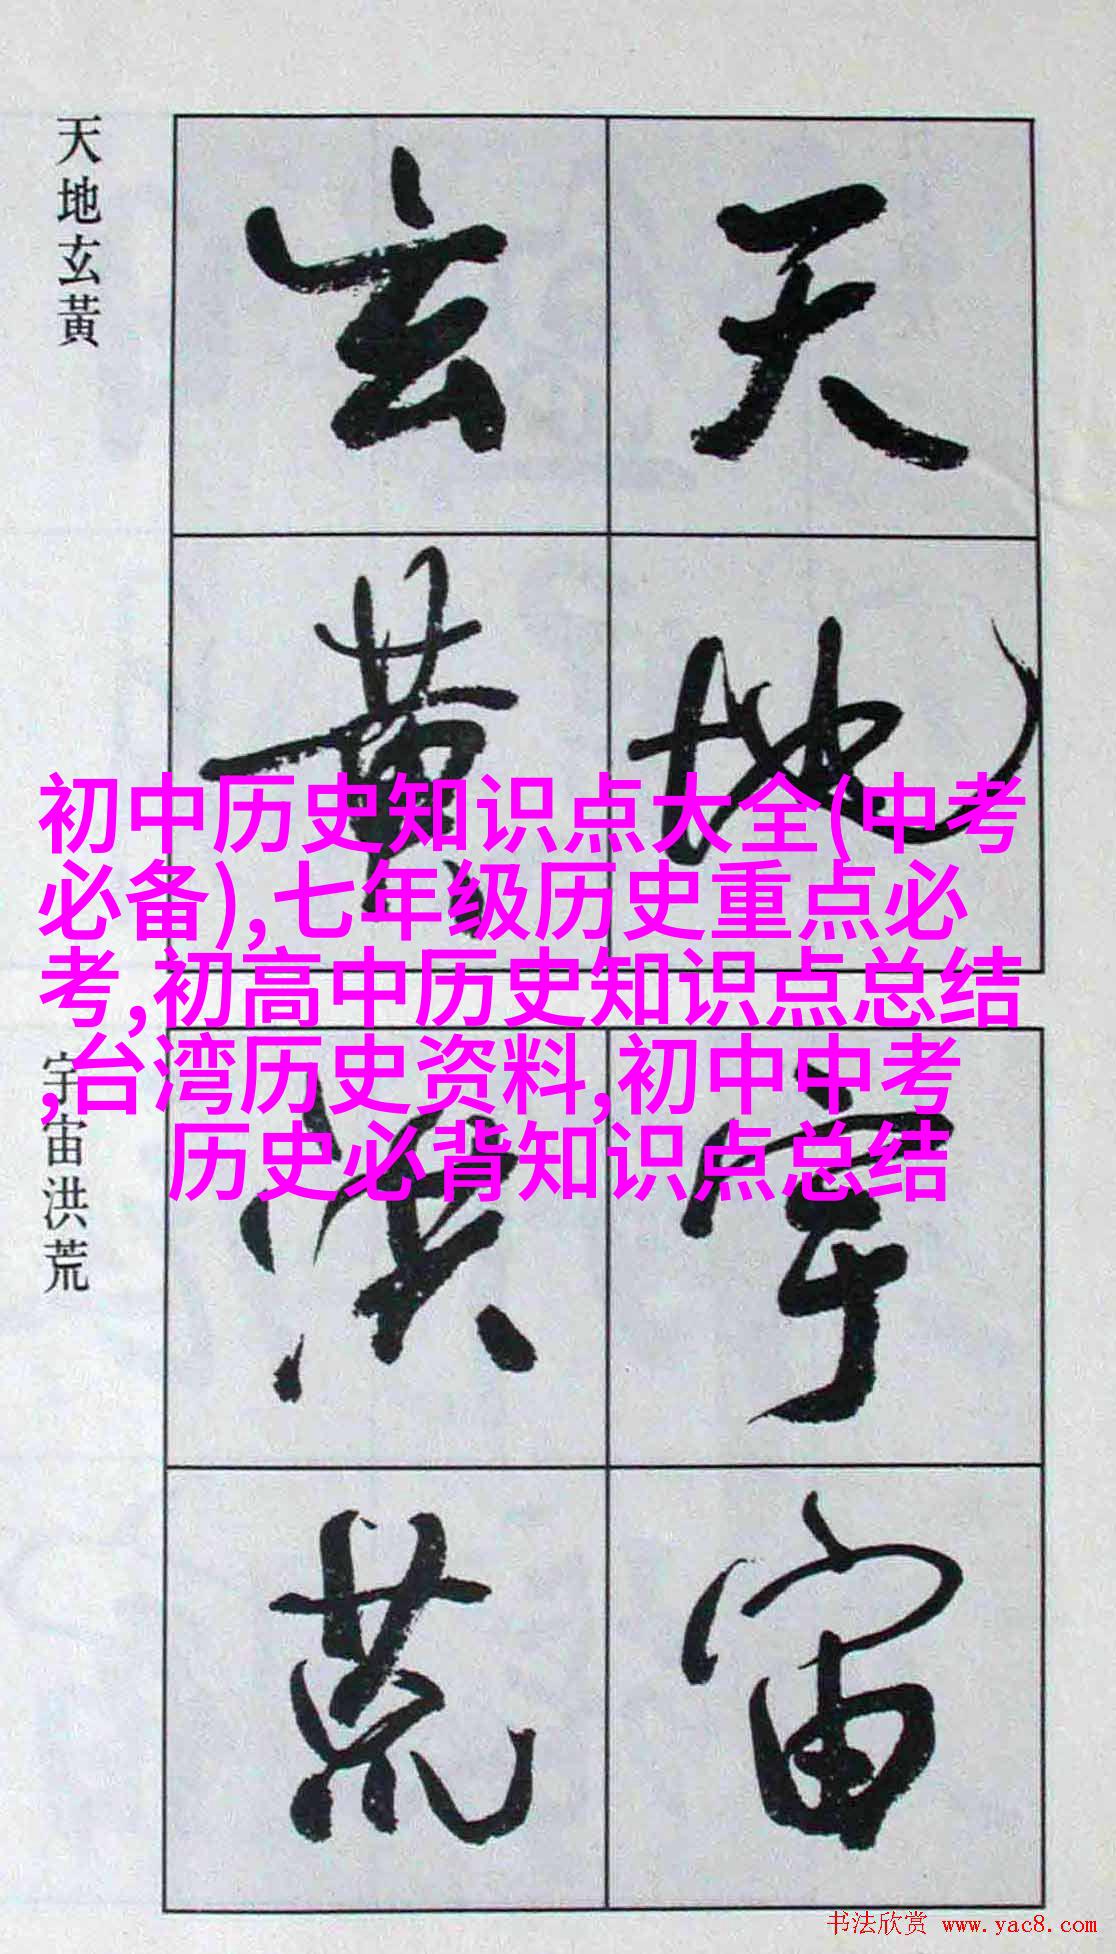 天地玄黃
天地
玄黄
初中历史知识点大全(中考
必备),七年级历史重点必
考,初高中历史知识点总结
,台湾历史资料,初中中考
历史必背知识点总结
宇宙洪荒
宇宙
洪荒
书法欣赏 www.yac8.com